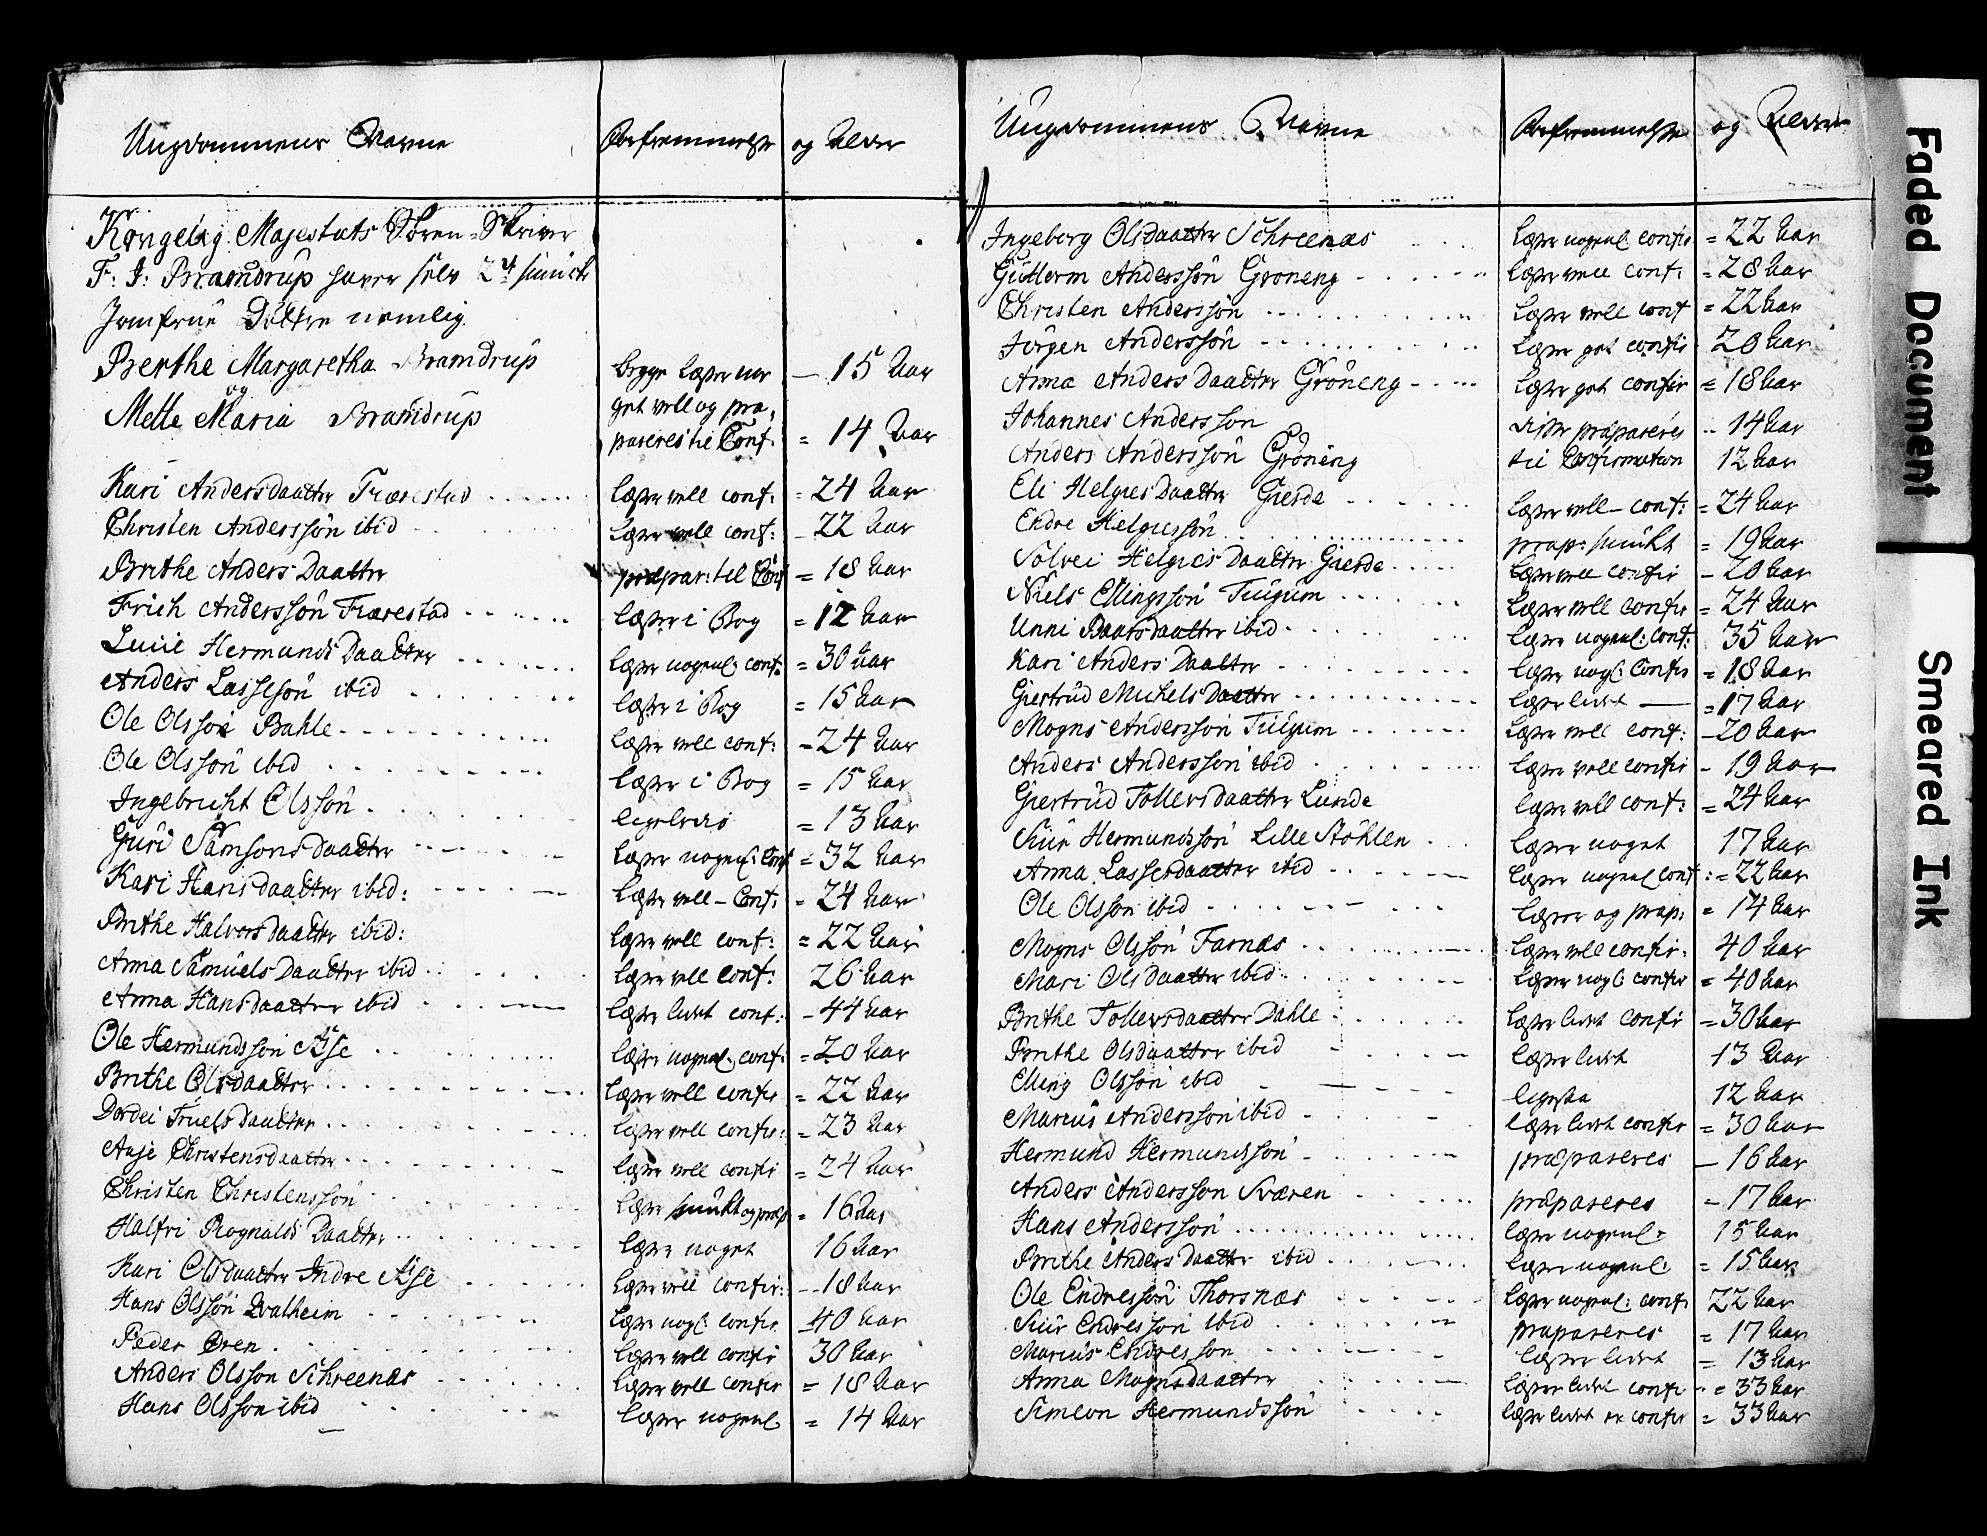 Ungdommens Navne Befremmelse og Alder
Kongelig Majestæts Soren-Skriver
F: I: Bramdrup haver selv 2de smuck
Jomfrue Döttre nemlig
Berthe Margaretha Bramdrup begge læser ner — 15 Aar
og get vell og præ,
Mette Maria Bramdrup pareres til Conf. = 14 Aar
Kari Andersdaatter Fiærestad læser vell conf: = 24 Aar
Christen Anderssön ibid læser vell conf: — 22 Aar
Brithe Anders Daatter præpar: til Conf = 18 Aar
Frich Anderssön Fiærestad læser i Bog = 12 Aar
Lucie Hermunds Daatter læser nogenl. conf. = 30 Aar
Anders Lassesön ibid læser i Bog = 15 Aar
Ole Olssön Bahle læser vell conf: = 24 Aar
Ole Olssön ibid læser i Bog = 15 Aar
Ingebricht Olssön ligeledes = 13 Aar
Guri Samsons daatter læser nogenl: Conf = 32 Aar
Kari Hansdaatter ibid: læser vell – Conf: = 24 Aar
Brithe Halvorsdaatter ibid: læser vell conf: = 22 Aar
Anna Samuels Daatter ibid læser vell conf: 26 Aar
Anna Hansdaatter ibid læser lidet conf: – 44 Aar
Ole Hermundssön Aße læser nogenl. conf: = 20 Aar
Brithe Olsdaatter læser vell confir = 22 Aar
Dordei Truels Daatter læser vell confir: = 23 Aar
Aase Christensdaatter læser vell confir = 24 Aar
Christen Christenssön læser smukt og præp = 16 Aar
Halfri Rognalds Daatter læser noget 16 Aar
Kari Olsdaatter Indre Aße læser vell confir: – 18 Aar
Hans Olssön Qvalheim læser nogl: confir = 40 Aar
Peder Øren læser vell confir 30 Aar
Anders Olsson Schreenæs læser vell confir = 18 Aar
Hans Olsson ibid læser nogenl = 14 Aar
Ungdommens Navne Befremmelse og Alder
Ingeborg Olsdaatter Schreenæs læser nogenl confir = 22 Aar
Guttorm Anderssön Gröneng læser vell conf: = 28 Aar
Christen Anderssön læser vell conf = 22 Aar
Jörgen Anderssön læser got confir 20 Aar
Anna Anders Daatter Gröneng læser got confir = 18 Aar
Johannes Andersson disse præpareres 14 Aar
Anders Anderssön Gröneng til Confirmation 12 Aar
Eli Helgies Daatter Gierde læser vell – conf: = 24 Aar
Endre Helgiessön præp: smukt = 19 Aar
Solvei Helgies Daatter Gierde læser vell confir – 20 Aar
Niels Ellingssön Tuigum læser vell confir = 24 Aar
Unni Baarsdaatter ibid læser nogenl: conf: 35 Aar
Kari Anders Daatter læser nogl: Confir = 18 Aar
Giertrud Michels Daatter læser lidet — = 17 Aar
Mogns Anderssön Tuigum læser vell conf: – 20 Aar
Anders Anderssön ibid læser vell confir – 19 Aar
Giertrud Tollersdaatter Lunde læser vell conf: = 24 Aar
Siur Hermundssön Lille Stöhlen læser noget 17 Aar
Anna Lassesdaatter ibid læser nogenl conf: = 22 Aar
Ole Olsson ibid læser og præp: = 14 Aar
Mogns Olssön Farnæs læser vell confir: 40 Aar
Mari Olsdaatter ibid læser nogl: confir = 40 Aar
Brithe Tollersdaatter Dahle læser lidet confir = 30 Aar
Brithe Olsdaatter ibid læser lidet 13 Aar
Elling Olsson ibid ligesaa 12 Aar
Marius Anderssön ibid læser lidet confir = 30 Aar
Hermund Hermundssön præpareres — 16 Aar
Anders Anderssön Sværen præpareres – 17 Aar
Hans Anderssön læser nogenl: 15 Aar
Brithe Anders Daatter ibid læser nogenl: = 15 Aar
Ole Endressön Thorsnæs læser nogenl: conf. 22 Aar
Siur Endressön ibid præpareres = 17 Aar
Marius Endresson læser lidet = 13 Aar
Anna Mognsdaatter læser lidet confir = 33 Aar
Simeon Hermundssön læser lidet er confir = 33 Aar
Faded Document
Smeared Ink